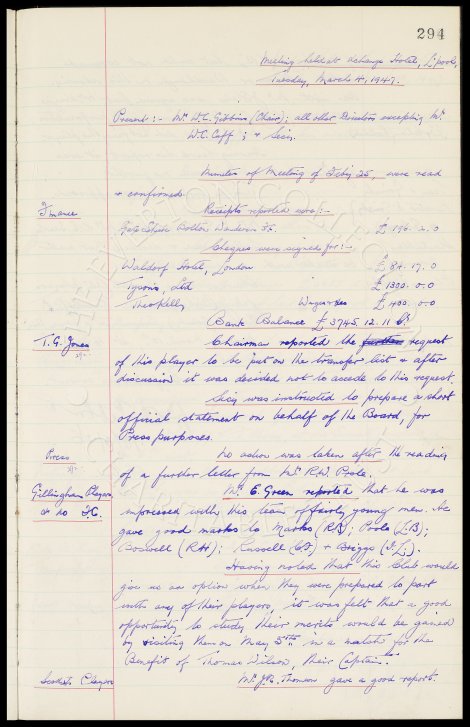 294
Meeting held at Exchange Hotel, L'pool,
Tuesday, March 4, 1947.
Present :- Mr W.C. Gibbins (Chair); all other Directors excepting Mr
W.C. Cuff; & Secy.
Minutes of Meeting of Feby 25, were read
& confirmed.
Finance
Receipts reported were :-
Gate Share Bolton Wanderers F.C. £ 196. 2. 0
Cheques were signed for :-
Waldorf Hotel, London £ 84. 17. 0
Tyson's, Ltd £ 1300. 0. 0
Theo Kelly Wages & Exs £ 400. 0. 0
Bank Balance £ 3745. 12. 11
T. G. Jones
Chairman reported the further request
of this player to be put on the transfer list & after
discussion it was decided not to accede to this request.
Secy was instructed to prepare a short
official statement on behalf of the Board, for
Press purposes.
Press
No action was taken after the reading
of a further letter from Mr R.W.
Gillingham Players
Mr E. Green reported that he was
impressed with this team of fairly young men. He
gave good marks to Marks (RB); Poole (LB);
Boswell (RH); Russell & Briggs
Having noted that this Club would
give us an option when they were prepared to part
with any of their players, it was felt that a good
opportunity to study their merits would be gained
by visiting them on May 5th in a match for the
Benefit of Thomas Wilson, their Captain.
Players
Mr J.R. Thomson gave a good report.